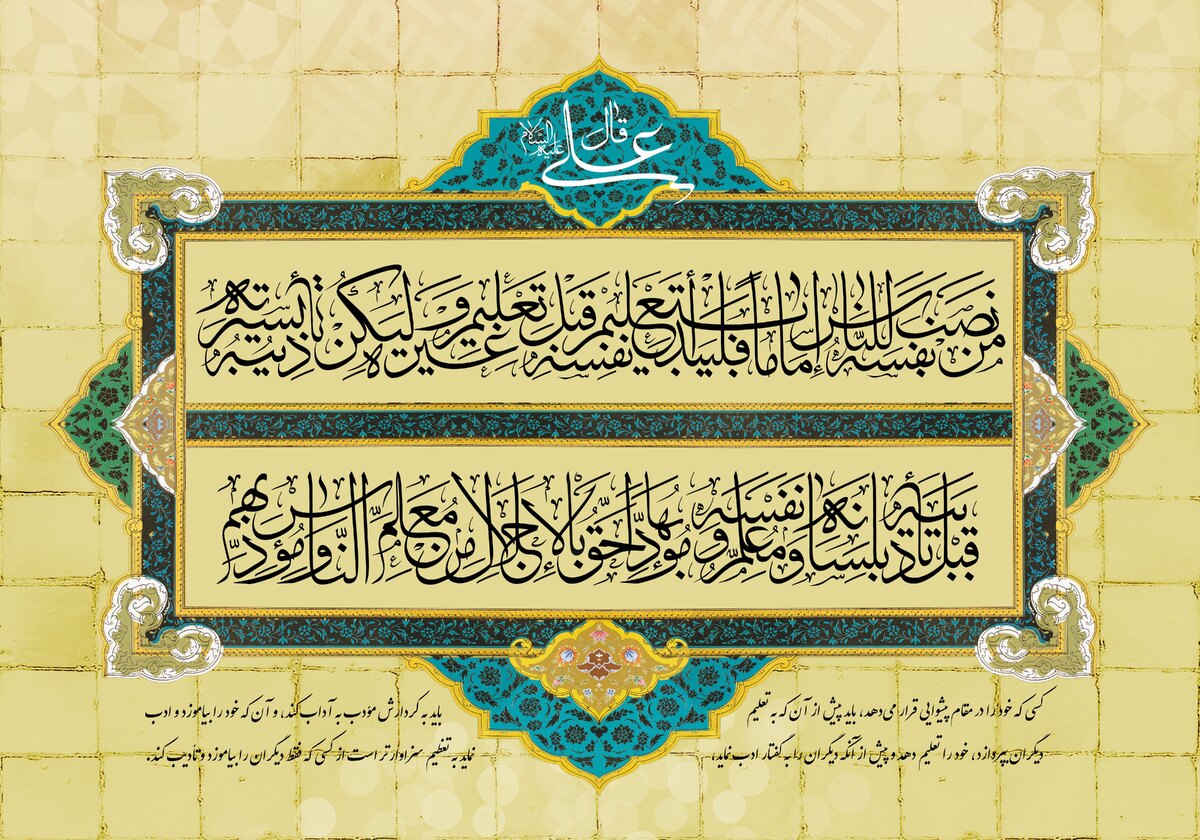 قال علي عليه السلام
من نصب نفسه للناس إماماً فليبدأ بتعليم نفسه قبل تعليم غيره وليكن تأديبه بسيرته
قبل تأديبه بلسانه ومعلم نفسه ومؤدبها أحق بالإجلال من معلم الناس ومؤدبهم
کسی که خود را در مقام پیشوایی قرار می‌دهد، باید پیش از آن که به تعلیم
دیگران بپردازد، خود را تعلیم دهد و پیش از آنکه دیگران را به گفتار ادب نماید،
باید به کردارش مؤدب به آداب کند، و آن که خود را بیاموزد و ادب
نماید به تعظیم سزاوارتر است از کسی که فقط دیگران را بیاموزد و تأدیب کند.